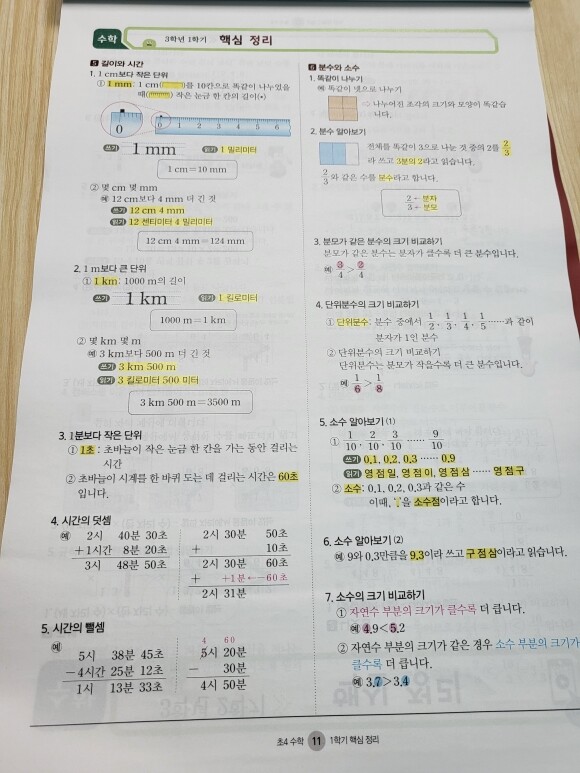 수학
3학년 1학기 핵심 정리
5 길이와 시간
1. 1 cm보다 작은 단위
① 1 mm: 1 cm( )를 10칸으로 똑같이 나누었을
때( ) 작은 눈금 한 칸의 길이(•)
0
0 1 2 3 4 5 6
쓰기 1 mm 읽기 1 밀리미터
1 cm=10 mm
② 몇 cm 몇 mm
예 12 cm보다 4 mm 더 긴 것
쓰기 12 cm 4 mm
읽기 12 센티미터 4 밀리미터
12 cm 4 mm=124 mm
2. 1 m보다 큰 단위
① 1 km: 1000 m의 길이
쓰기 1 km 읽기 1 킬로미터
1000 m=1 km
② 몇 km 몇 m
예 3 km보다 500 m 더 긴 것
쓰기 3 km 500 m
읽기 3 킬로미터 500 미터
3 km 500 m=3500 m
3. 1분보다 작은 단위
① 1초: 초바늘이 작은 눈금 한 칸을 가는 동안 걸리는
시간
② 초바늘이 시계를 한 바퀴 도는 데 걸리는 시간은 60초
입니다.
4. 시간의 덧셈
예 2시 40분 30초
+1시간 8분 20초
3시 48분 50초
2시 30분 50초
+ 10초
2시 30분 60초
+ +1분←-60초
2시 31분
5. 시간의 뺄셈
예
5시 38분 45초
-4시간 25분 12초
1시 13분 33초
4 60
5시 20분
- 30분
4시 50분
6 분수와 소수
1. 똑같이 나누기
예 똑같이 넷으로 나누기
⇨ 나누어진 조각의 크기와 모양이 똑같습
니다.
2. 분수 알아보기
전체를 똑같이 3으로 나눈 것 중의 2를 2/3
라 쓰고 3분의 2라고 읽습니다.
2/3와 같은 수를 분수라고 합니다.
2 ← 분자
3 ← 분모
3. 분모가 같은 분수의 크기 비교하기
분모가 같은 분수는 분자가 클수록 더 큰 분수입니다.
예 3/4 > 2/4
4. 단위분수의 크기 비교하기
① 단위분수: 분수 중에서 1/2, 1/3, 1/4, 1/5 ……과 같이
분자가 1인 분수
② 단위분수의 크기 비교하기
단위분수는 분모가 작을수록 더 큰 분수입니다.
예 1/6 > 1/8
5. 소수 알아보기 (1)
① 1/10, 2/10, 3/10 …… 9/10
쓰기 0.1, 0.2, 0.3 …… 0.9
읽기 영 점 일, 영 점 이, 영 점 삼 …… 영 점 구
② 소수: 0.1, 0.2, 0.3과 같은 수
이때, '.'을 소수점이라고 합니다.
6. 소수 알아보기 (2)
예 9와 0.3만큼을 9.3이라 쓰고 구 점 삼이라고 읽습니다.
7. 소수의 크기 비교하기
① 자연수 부분의 크기가 클수록 더 큽니다.
예 4.9<5.2
② 자연수 부분의 크기가 같은 경우 소수 부분의 크기가
클수록 더 큽니다.
예 3.7>3.4
초4 수학 11 1학기 핵심 정리